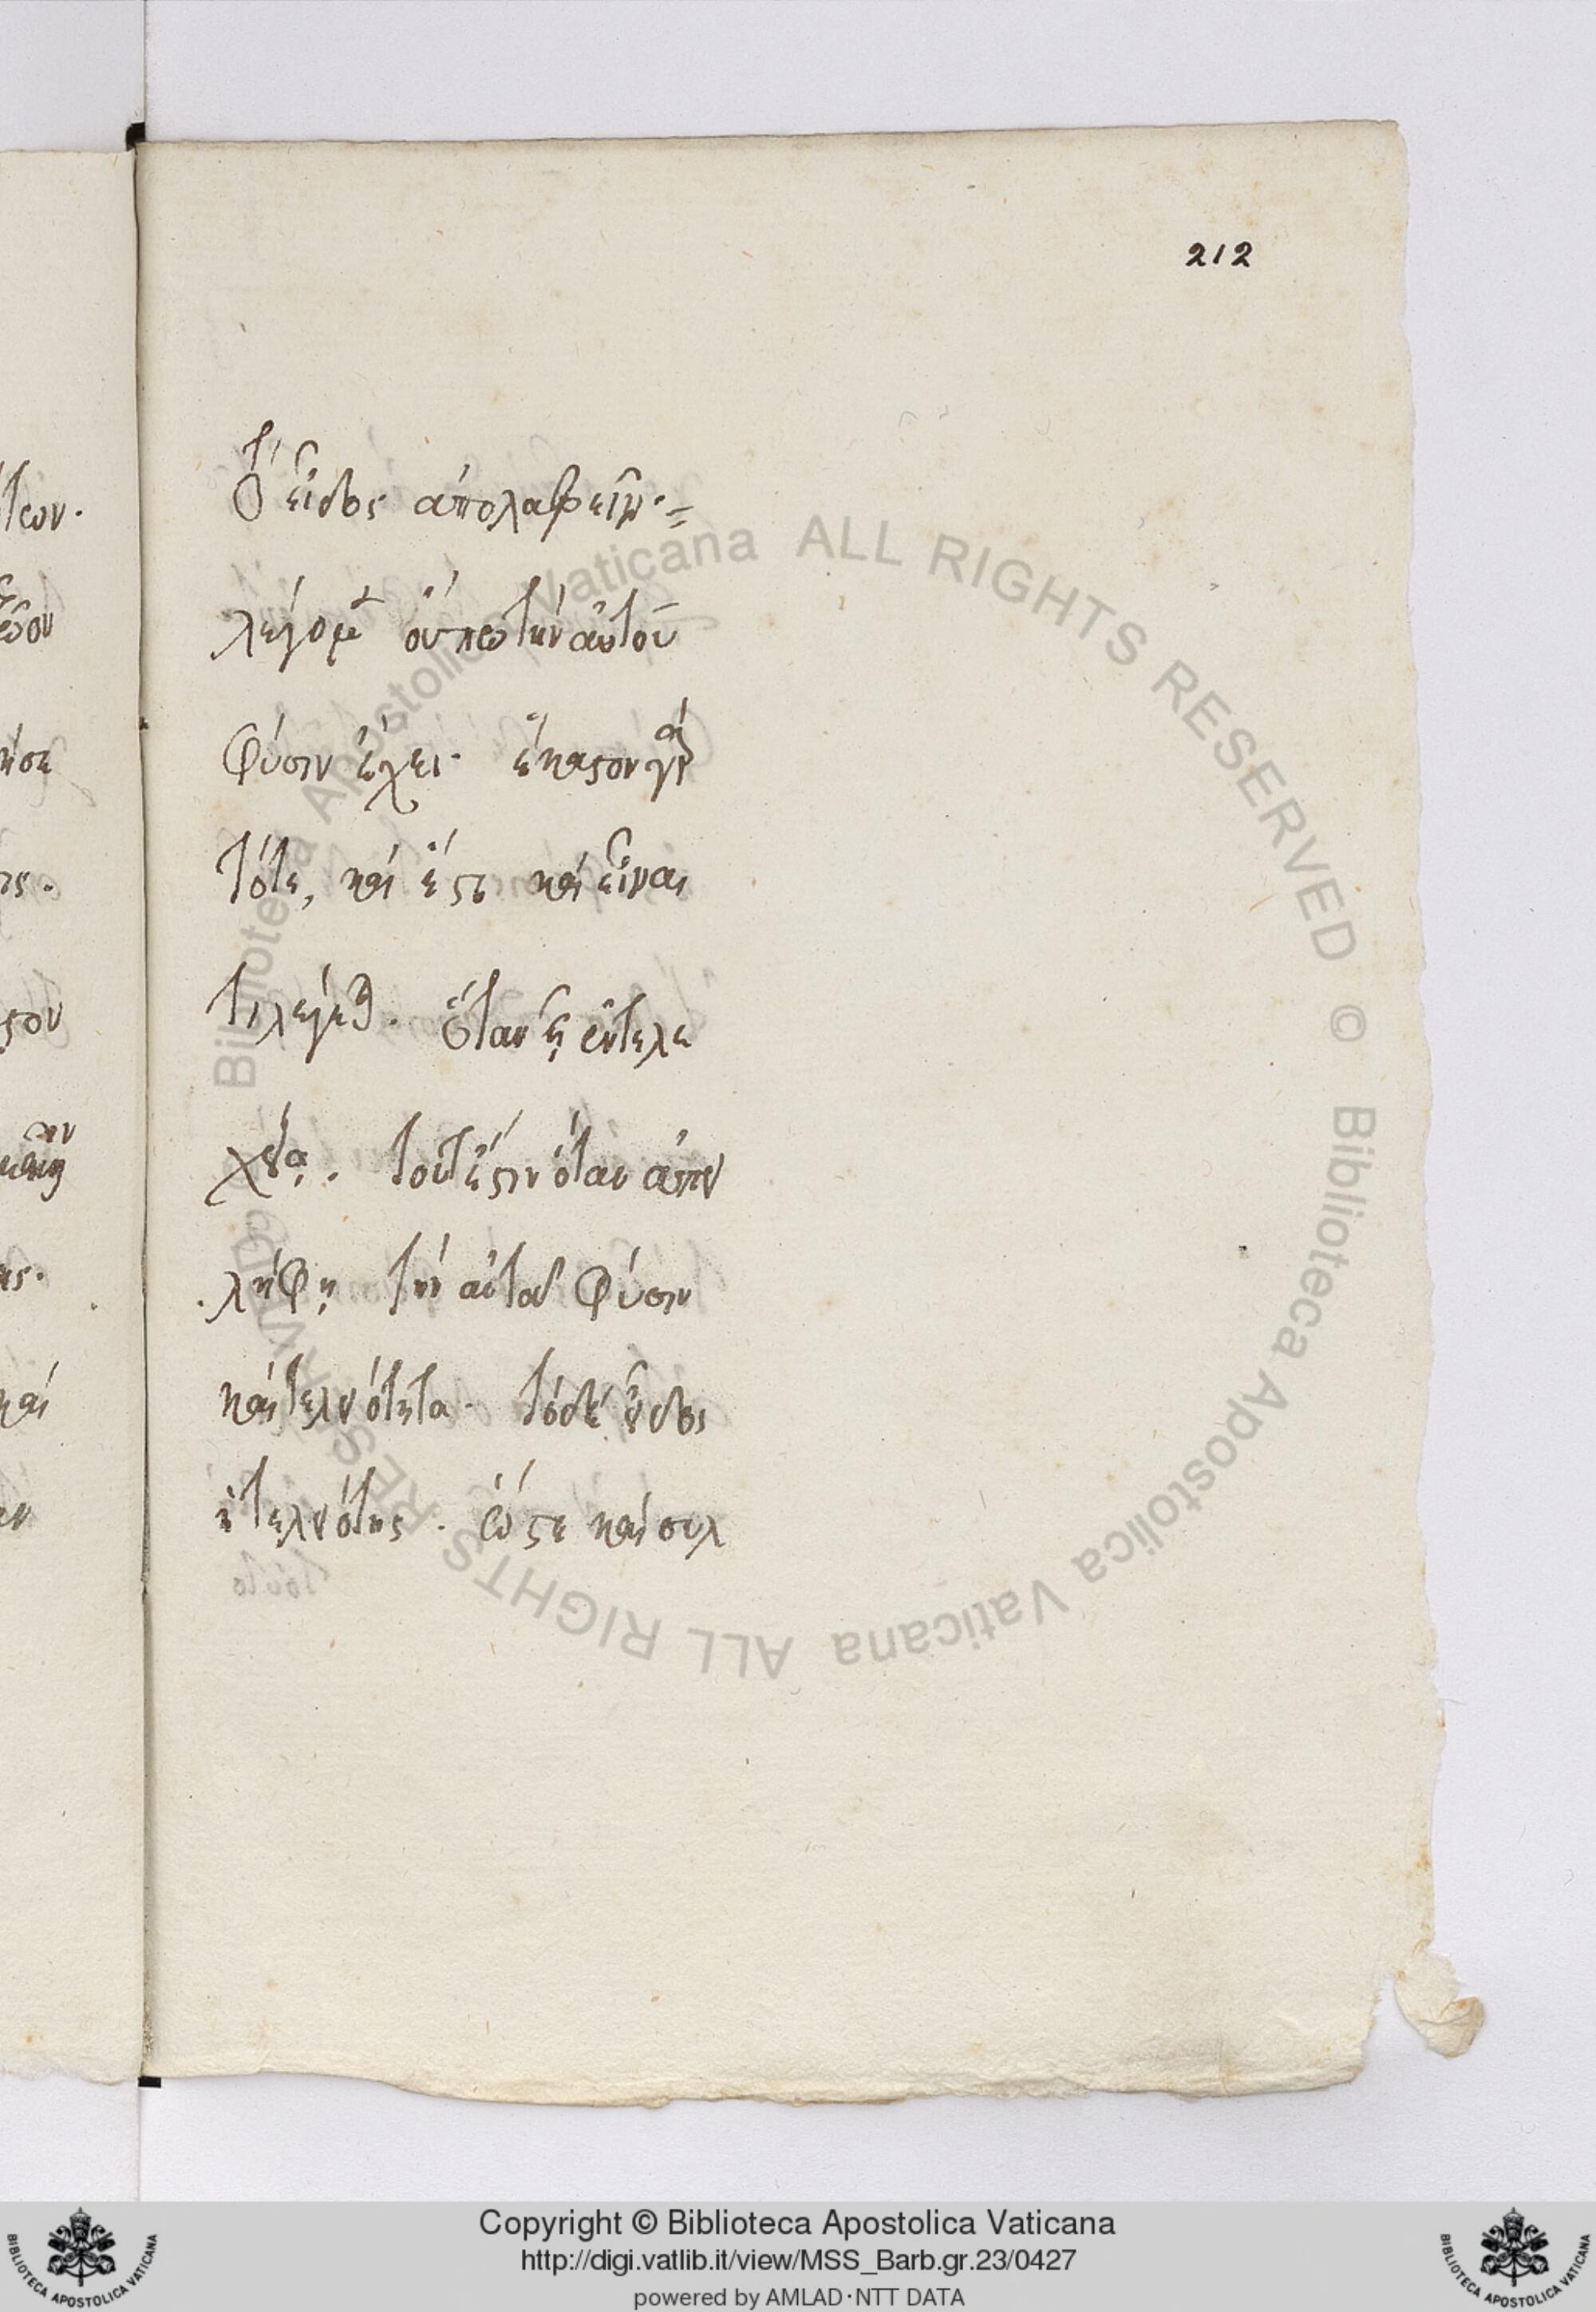 212
τὸ εἶδος ἀπολαβεῖν·
λέγομεν οὔπω τὴν αὐτοῦ
φύσιν ἔχει· ἕκαστον γὰρ
τότε, καὶ ἔστι καὶ εἶναι
τι λέγεται. ὅταν ᾖ ἐντελε
χείᾳ. τουτέστιν ὅταν ἀπει
λήφῃ τὴν αὐτοῦ φύσιν
καὶ τελειότητα. τὸ δὲ εἶδος
ἡ τελειότης. ὥστε καὶ συλ
Biblioteca Apostolica Vaticana ALL RIGHTS RESERVED © Biblioteca Apostolica Vaticana ALL RIGHTS RESERVED ©
Copyright © Biblioteca Apostolica Vaticana
http://digi.vatlib.it/view/MSS_Barb.gr.23/0427
powered by AMLAD·NTT DATA
BIBLIOTECA APOSTOLICA VATICANA
BIBLIOTECA APOSTOLICA VATICANA